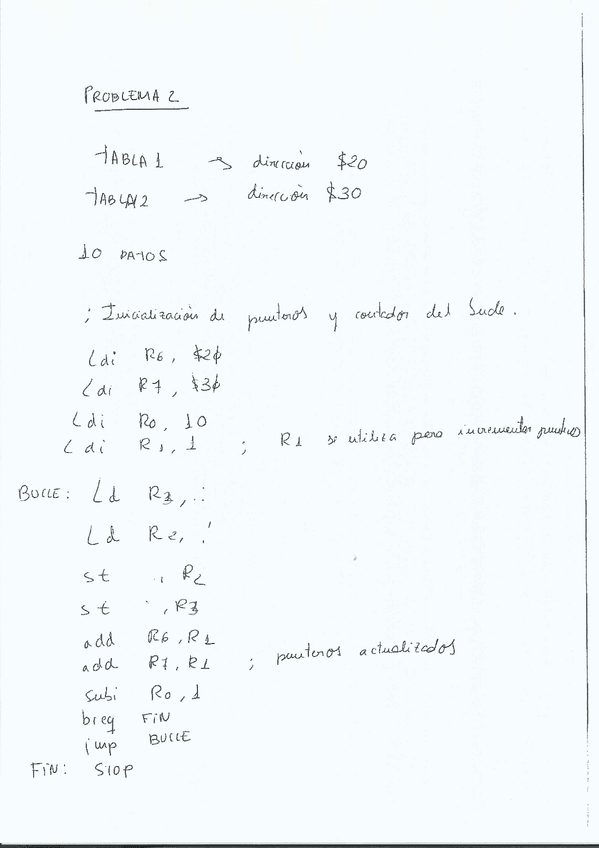 PROBLEMA 2
TABLA 1 → dirección $20
TABLA 2 → dirección $30
10 DATOS
; Inicialización de punteros y contador del bucle.
Ldi R6, $20
Ldi R7, $30
Ldi R0, 10
Ldi R1, 1 ; R1 se utiliza para incrementar punteros
BUCLE: Ld R3,
Ld R2,
st , R2
st , R3
add R6, R1
add R7, R1 ; punteros actualizados
subi R0, 1
breq FIN
jmp BUCLE
FIN: STOP